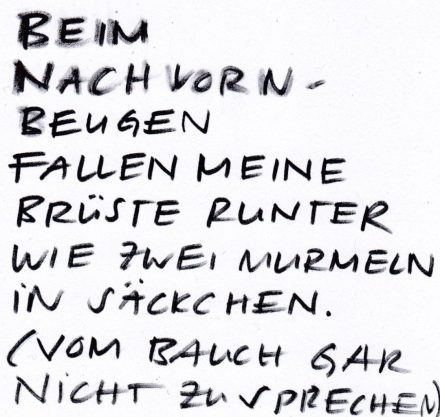 BEIM
NACHVORN-
BEUGEN
FALLEN MEINE
BRÜSTE RUNTER
WIE ZWEI MURMELN
IN SÄCKCHEN.
(VOM BAUCH GAR
NICHT ZU SPRECHEN)